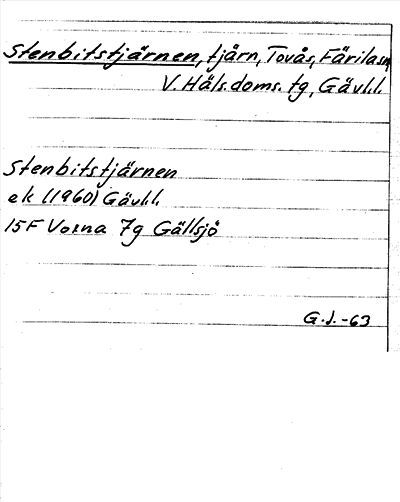 Stenbitstjärnen, tjärn, Tovås, Färilasn
V. Häls. doms. tg, Gävl.l.
Stenbitstjärnen
ek (1960) Gävl.l.
15F Voxna 7g Gällsjö
G.J.-63